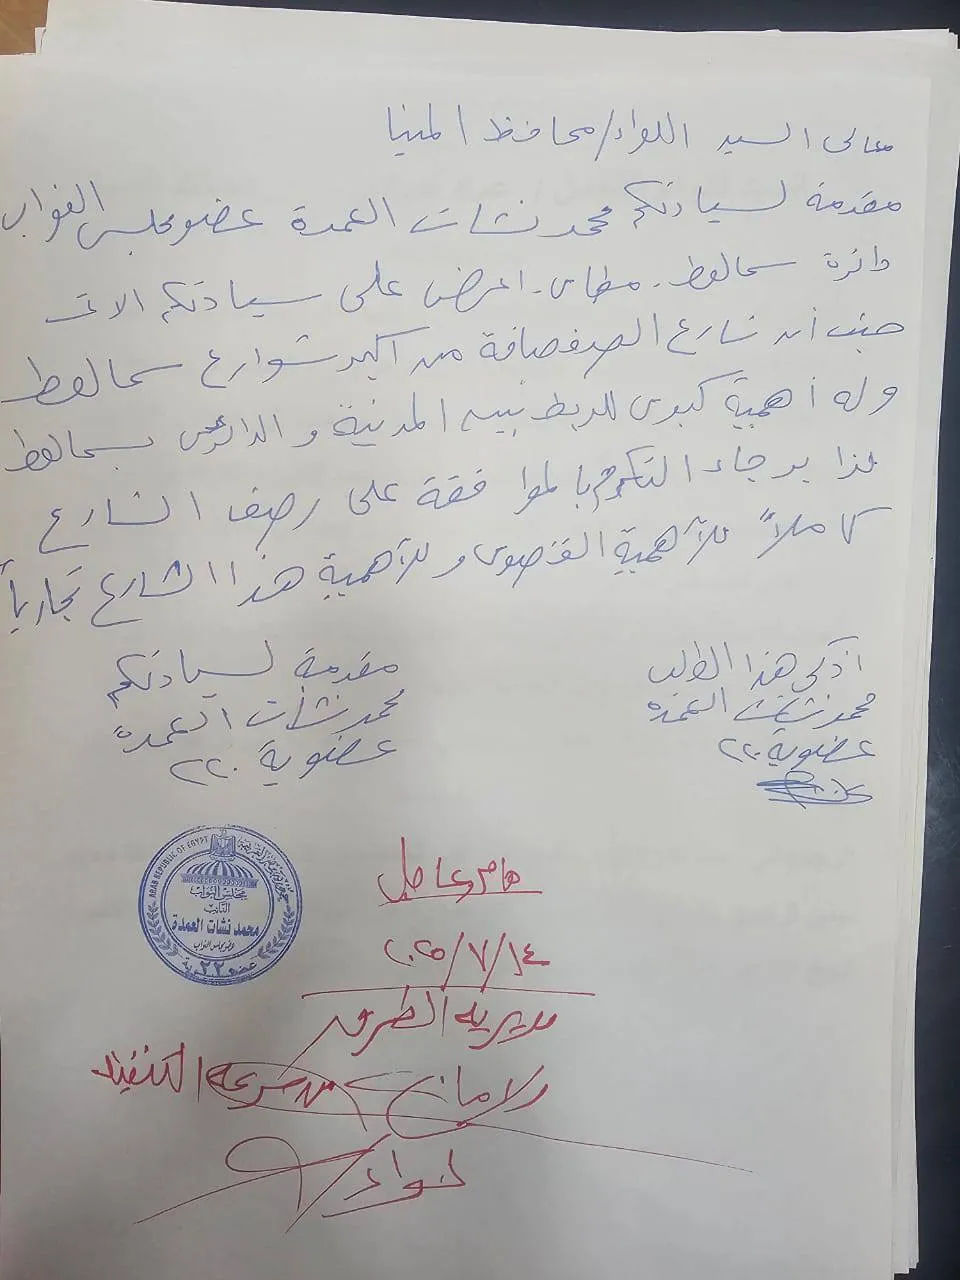 معالى السيد اللواء/محافظ المنيا
مقدمة لسيادتكم محمد نشات العمدة عضو مجلس النواب
دائرة سمالوط - مطاى - اعرض على سيادتكم الاتى
حيث أن شارع الصفصافة من اكبر شوارع سمالوط
وله أهمية كبوى للربط بين المدينة والدائرى بسمالوط
لذا برجاء التكرم بالموافقة على رصف الشارع
كاملاً للآهمية القصوى وللآهمية هذا الشارع تجارياً
اذكى هذا الطلب
محمد نشات العمدة
عضوية ٢٢٠
مقدمة لسيادتكم
محمد نشأت العمدة
عضوية ٢٢٠
ARAB REPUBLIC OF EGYPT
مجلس النواب
النائب
محمد نشات العمدة
عضو مجلس النواب
عضوية ٢٢٠
هام وعاجل
٢٠٢٥/٧/١٤
مديرية الطرق
ولا مانع من سرعة التنفيذ
لواء/